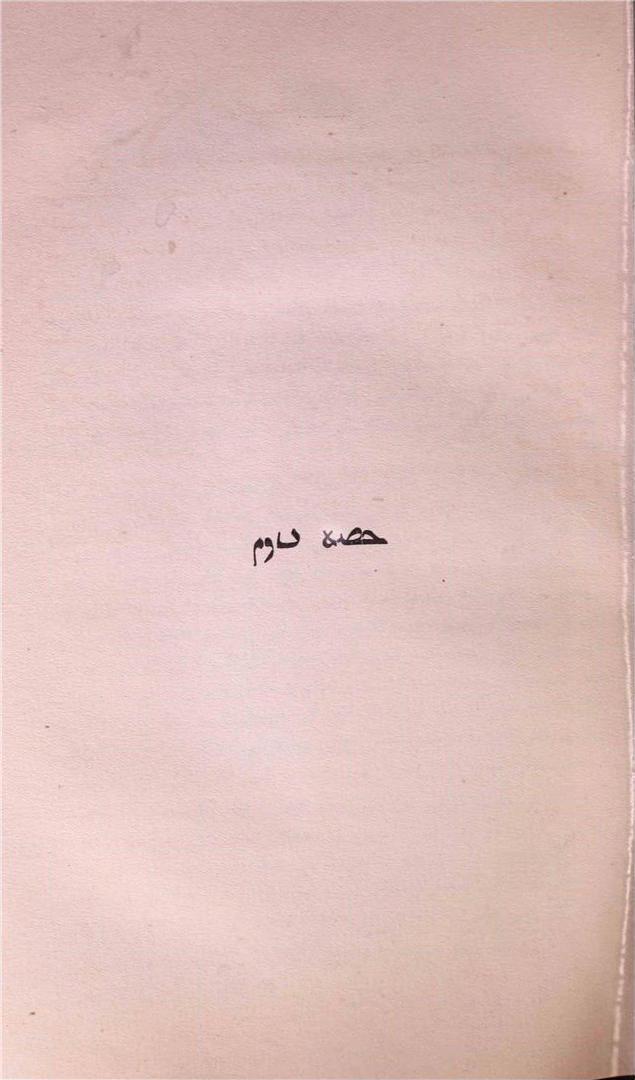 حصہ دوم